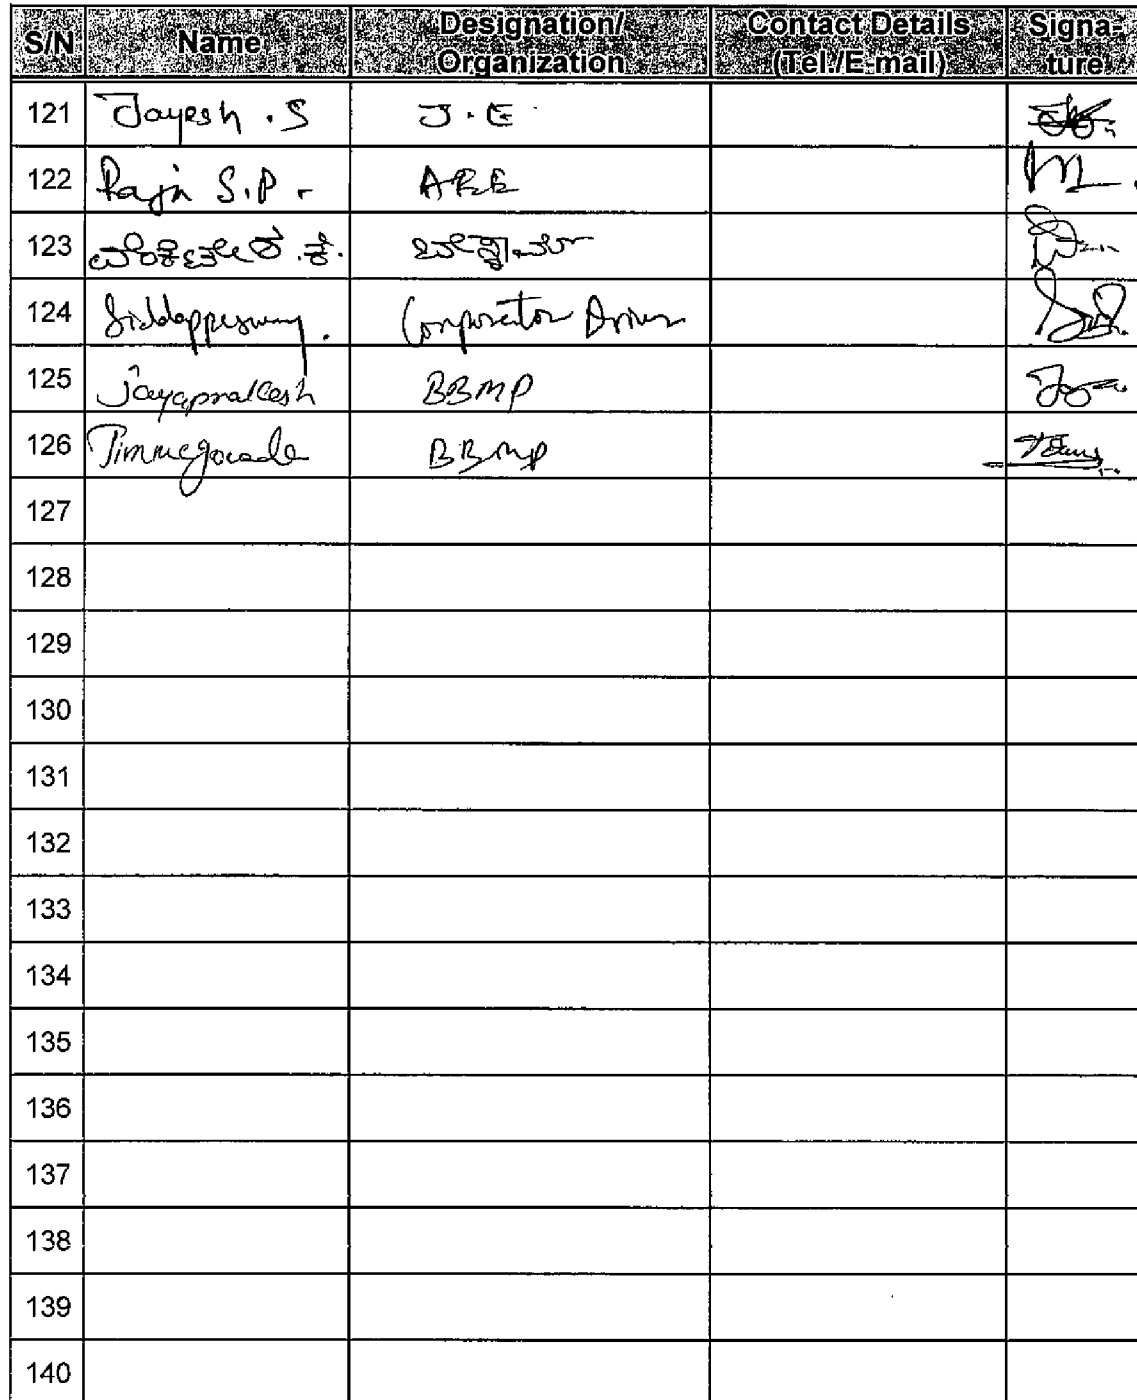 S/N Name Designation/ Organization Contact Details (Tel./E-mail) Signa-ture
121 Jayesh . S J . E
122 Raju S.P. AEE
123
124 Siddappaswamy. Corporator Driver
125 Jayaprakash BBMP
126 Timmegowda BBMP
127
128
129
130
131
132
133
134
135
136
137
138
139
140